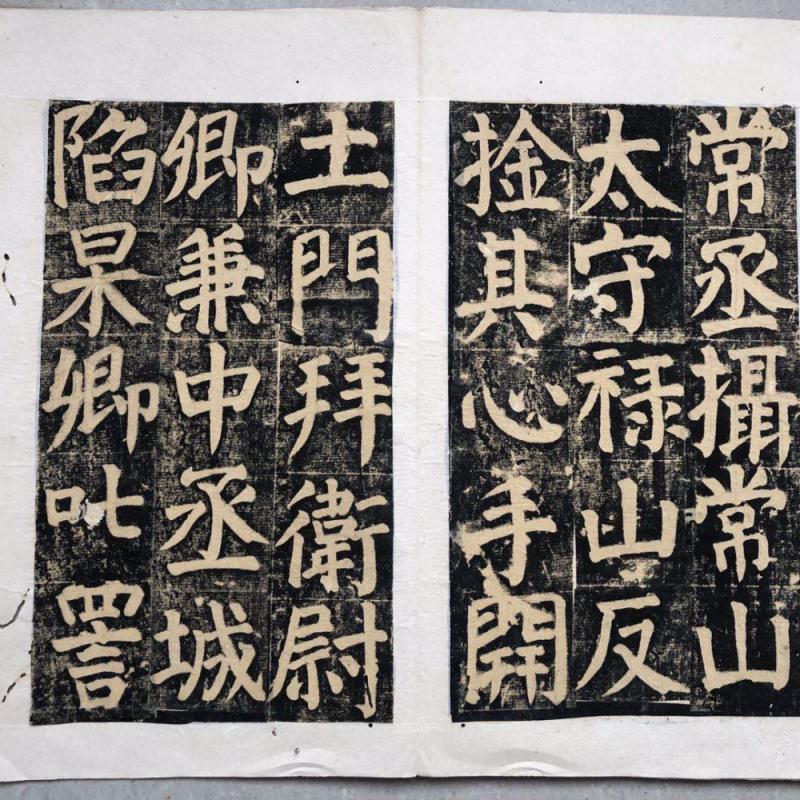 常丞攝常山
太守禄山反
捦其心手開
土門拜衛尉
卿兼中丞城
陷杲卿叱詈